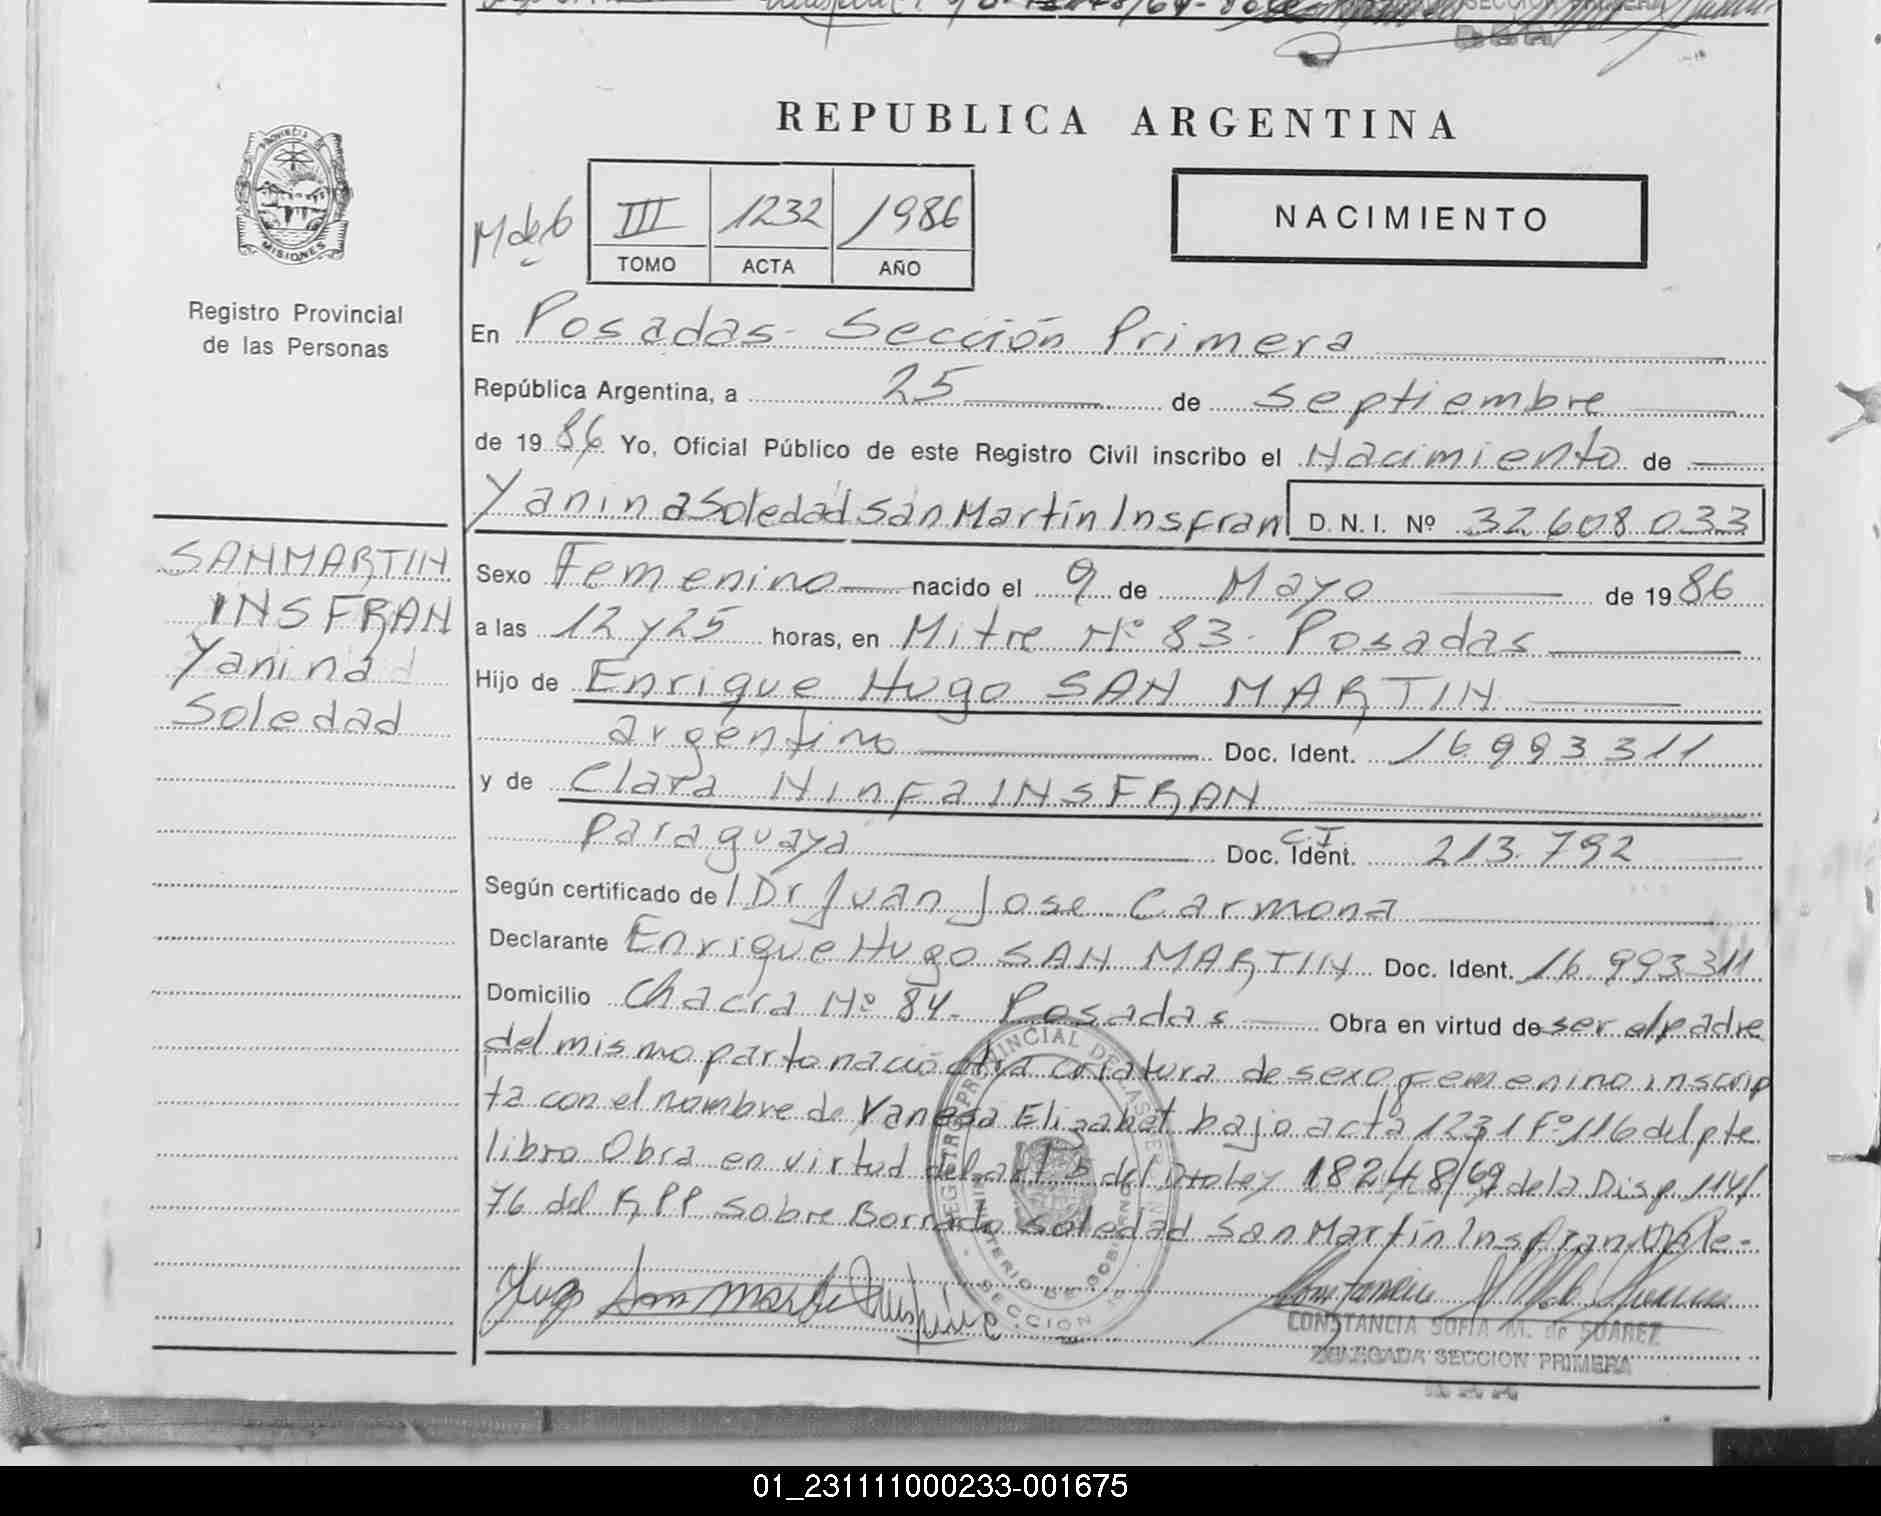 REPUBLICA ARGENTINA
PROVINCIA DE
MISIONES
Registro Provincial
de las Personas
III 1232 1986
TOMO ACTA AÑO
NACIMIENTO
En Posadas - Sección Primera
República Argentina, a 25 de septiembre
de 1986 Yo, Oficial Público de este Registro Civil inscribo el Nacimiento de
Yanina Soledad San Martín Insfran D.N.I. Nº 32608033
SAN MARTIN
INSFRAN
Yanina
Soledad
Sexo Femenino nacido el 9 de Mayo de 1986
a las 12 y 25 horas, en Mitre Nº 83 - Posadas
Hijo de Enrique Hugo SAN MARTIN
argentino Doc. Ident. 16993311
y de Clara Ninfa INSFRAN
paraguaya C.I Doc. Ident. 213.792
Según certificado de l Dr Juan Jose Carmona
Declarante Enrique Hugo SAN MARTIN Doc. Ident. 16 993311
Domicilio Chacra Nº 84 - Posadas Obra en virtud de ser el padre
del mismo parto nació otra criatura de sexo femenino inscrip
ta con el nombre de Vanesa Elizabet bajo acta 1231 Fº 116 del pte
libro Obra en virtud del art 5 del Dto ley 18248/69 de la Disp. 114/
76 del R P P Sobre Borrado Soledad San Martín Insfran Vale -
REGISTRO PROVINCIAL DE LAS PERSONAS
MINISTERIO DE GOBIERNO
SECCION
CONSTANCIA SOFIA M. de SUAREZ
DELEGADA SECCION PRIMERA
01_231111000233-001675